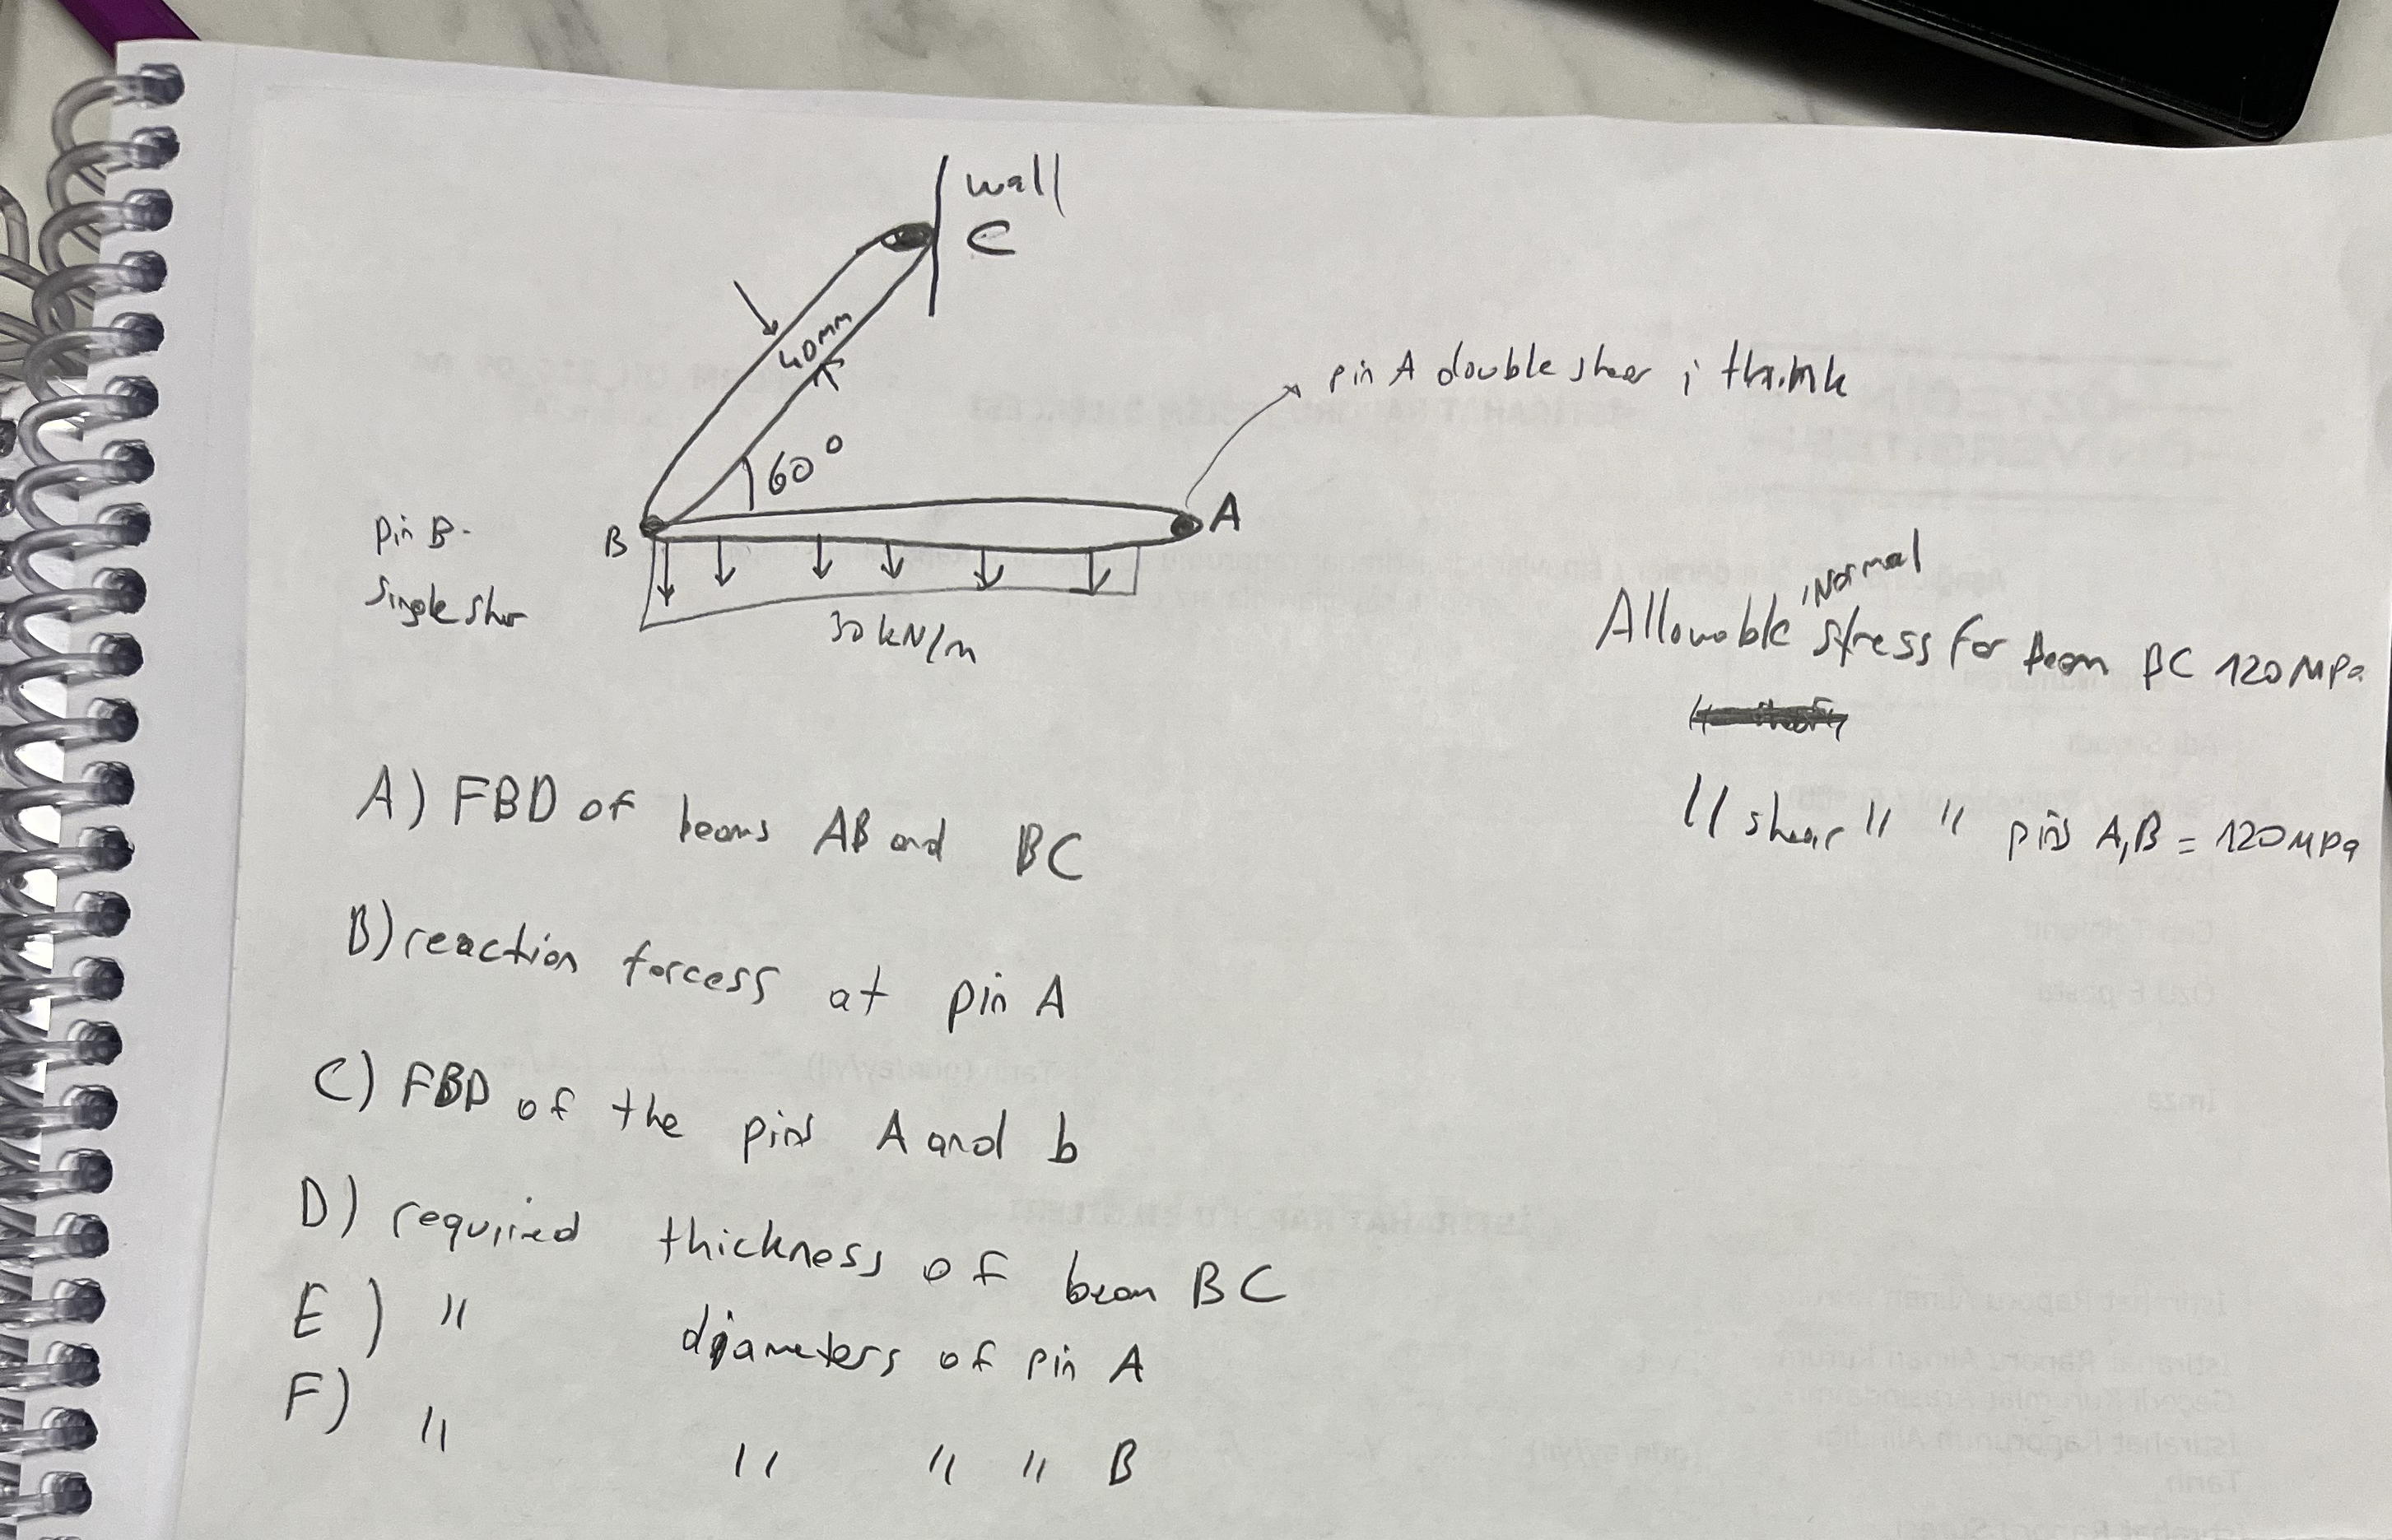 wall
C
40mm
pin A double shear i think
60°
B
A
pin B-
Single
30 kN/m
Allowable normal stress for beam BC 120MPa
" shear " " pins A,B = 120MPa
A) FBD of beams AB and BC
B) reaction forcess at pin A
C) FBD of the pins A and b
D) required thickness of beam BC
E) " diameters of pin A
F) " " " " B